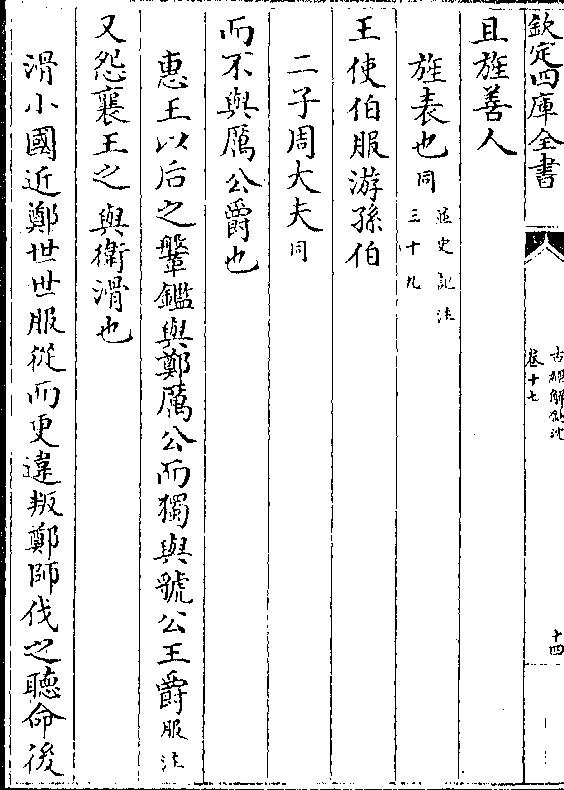 欽定四庫全書
古經解鉤沈
卷十七
十四
且旌善人
旌表也同
並史記注
三十九
王使伯服游孫伯
二子周大夫同
而不與厲公爵也
惠王以后之鞶鑑與鄭厲公而獨與號公王爵服注
又怨襄王之與衛滑也
滑小國近鄭世世服從而更違叛鄭師伐之聽命後